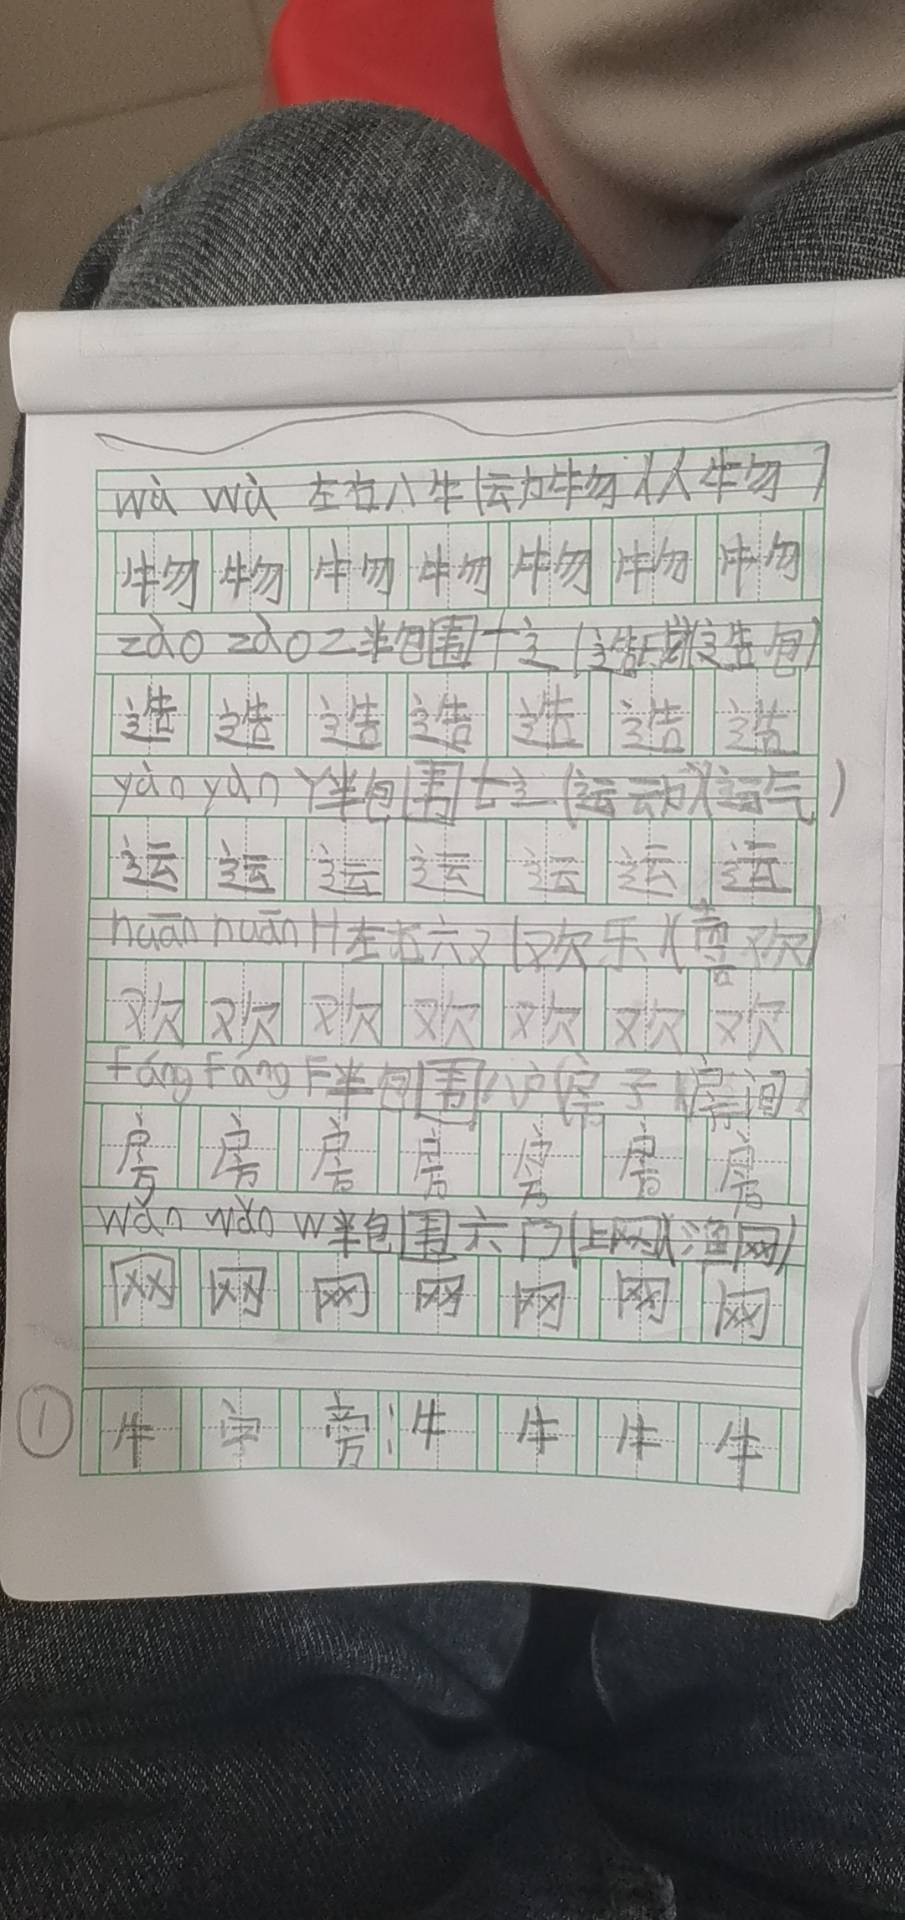 wù wù 左右八牛(动物)(人物)
物 物 物 物 物 物 物
zào zào Z半包围十辶(造成)(造包)
造 造 造 造 造 造 造
yàn yàn Y半包围七辶(运动)(运气)
运 运 运 运 运 运 运
huān huān H左右六又(欢乐)(喜欢)
欢 欢 欢 欢 欢 欢 欢
Fáng Fáng F半包围八户(房子)(房间)
房 房 房 房 房 房 房
wǎn wǎn W半包围六门(上网)(渔网)
网 网 网 网 网 网 网
① 牛 字 旁: 牜 牜 牜 牜